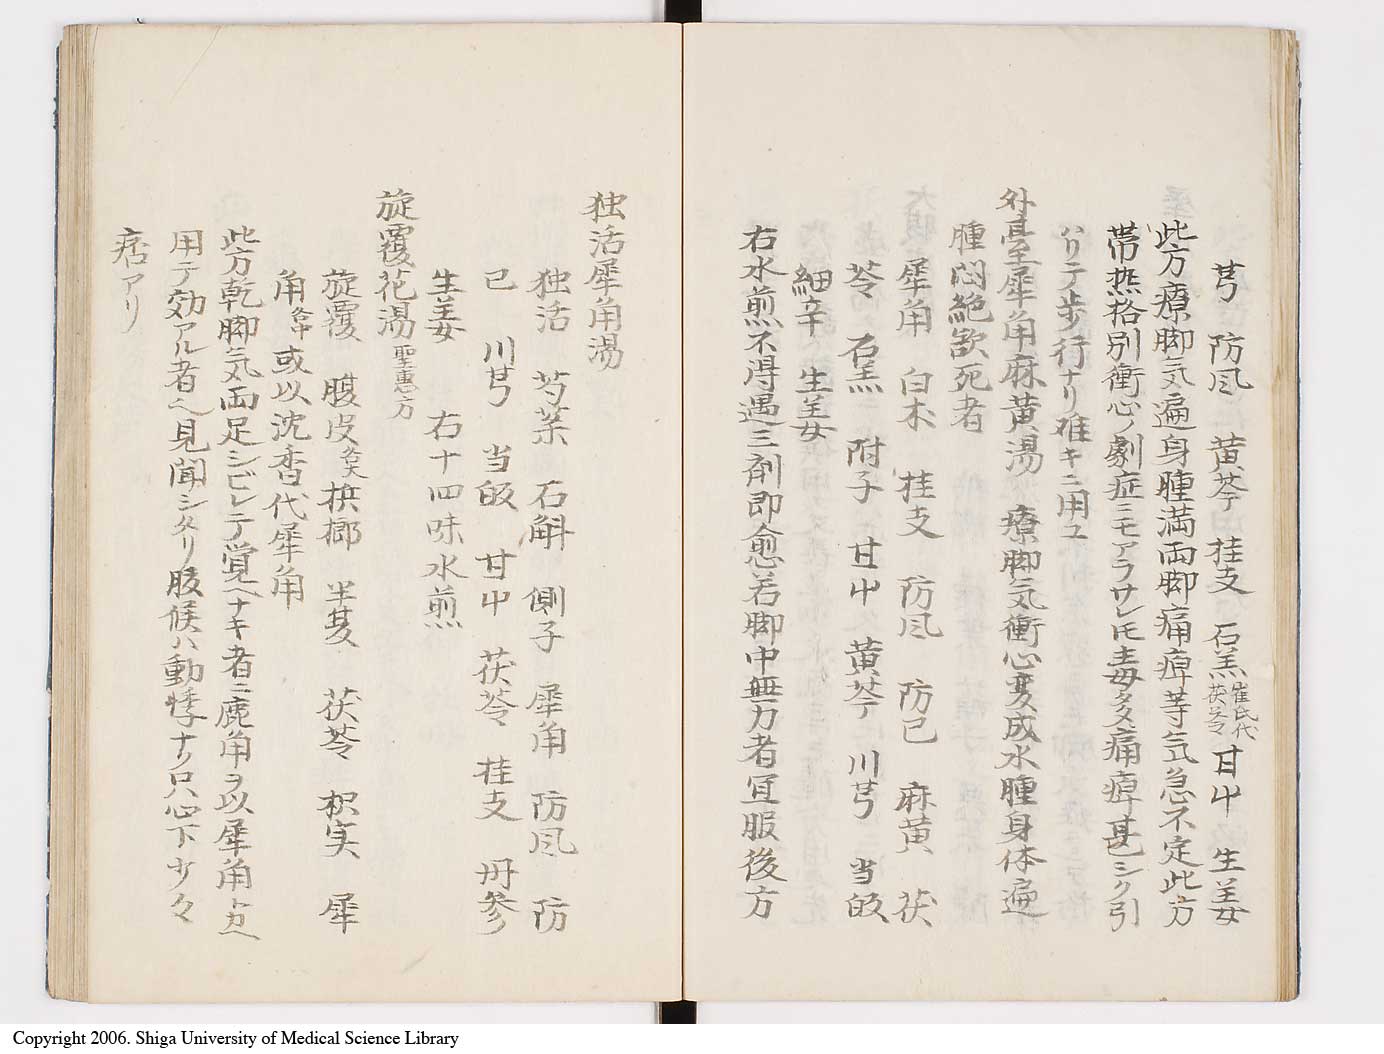 芎 防风 黄芩 桂支 石羔 崔氏代茯苓 甘屮 生姜
此方療脚気遍身腫満両脚痛痺等気急不定此方
帯热格別衝心ノ劇症ニモアラサレ𪜈毒多ク痛痺甚シク引
ハリテ歩行ナリ难キニ用ユ
外䑓犀角麻黄湯 療脚気衝心変成水腫身体遍
腫悶絶欲死者
犀角 白朮 桂支 防风 防已 麻黄 茯
苓 石羔 附子 甘屮 黄芩 川芎 当皈
細辛 生姜
右水煎不得過三剤即愈若脚中無力者宜服後方
独活犀角湯
独活 芍薬 石斛 側子 犀角 防风 防
已 川芎 当皈 甘屮 茯苓 桂支 丹参
生姜 右十四味水煎
旋覆花湯 聖惠方
旋覆 腹皮 大 梹榔 半夏 茯苓 枳実 犀
角 或以沈香代犀角
此方乾脚気両足シビレテ覚ヘナキ者ニ鹿角ヲ以犀角ニカヘ
用テ効アル者ヘ見聞シタリ腹候ハ動悸ナク只心下少々
痞アリ
Copyright 2006. Shiga University of Medical Science Library